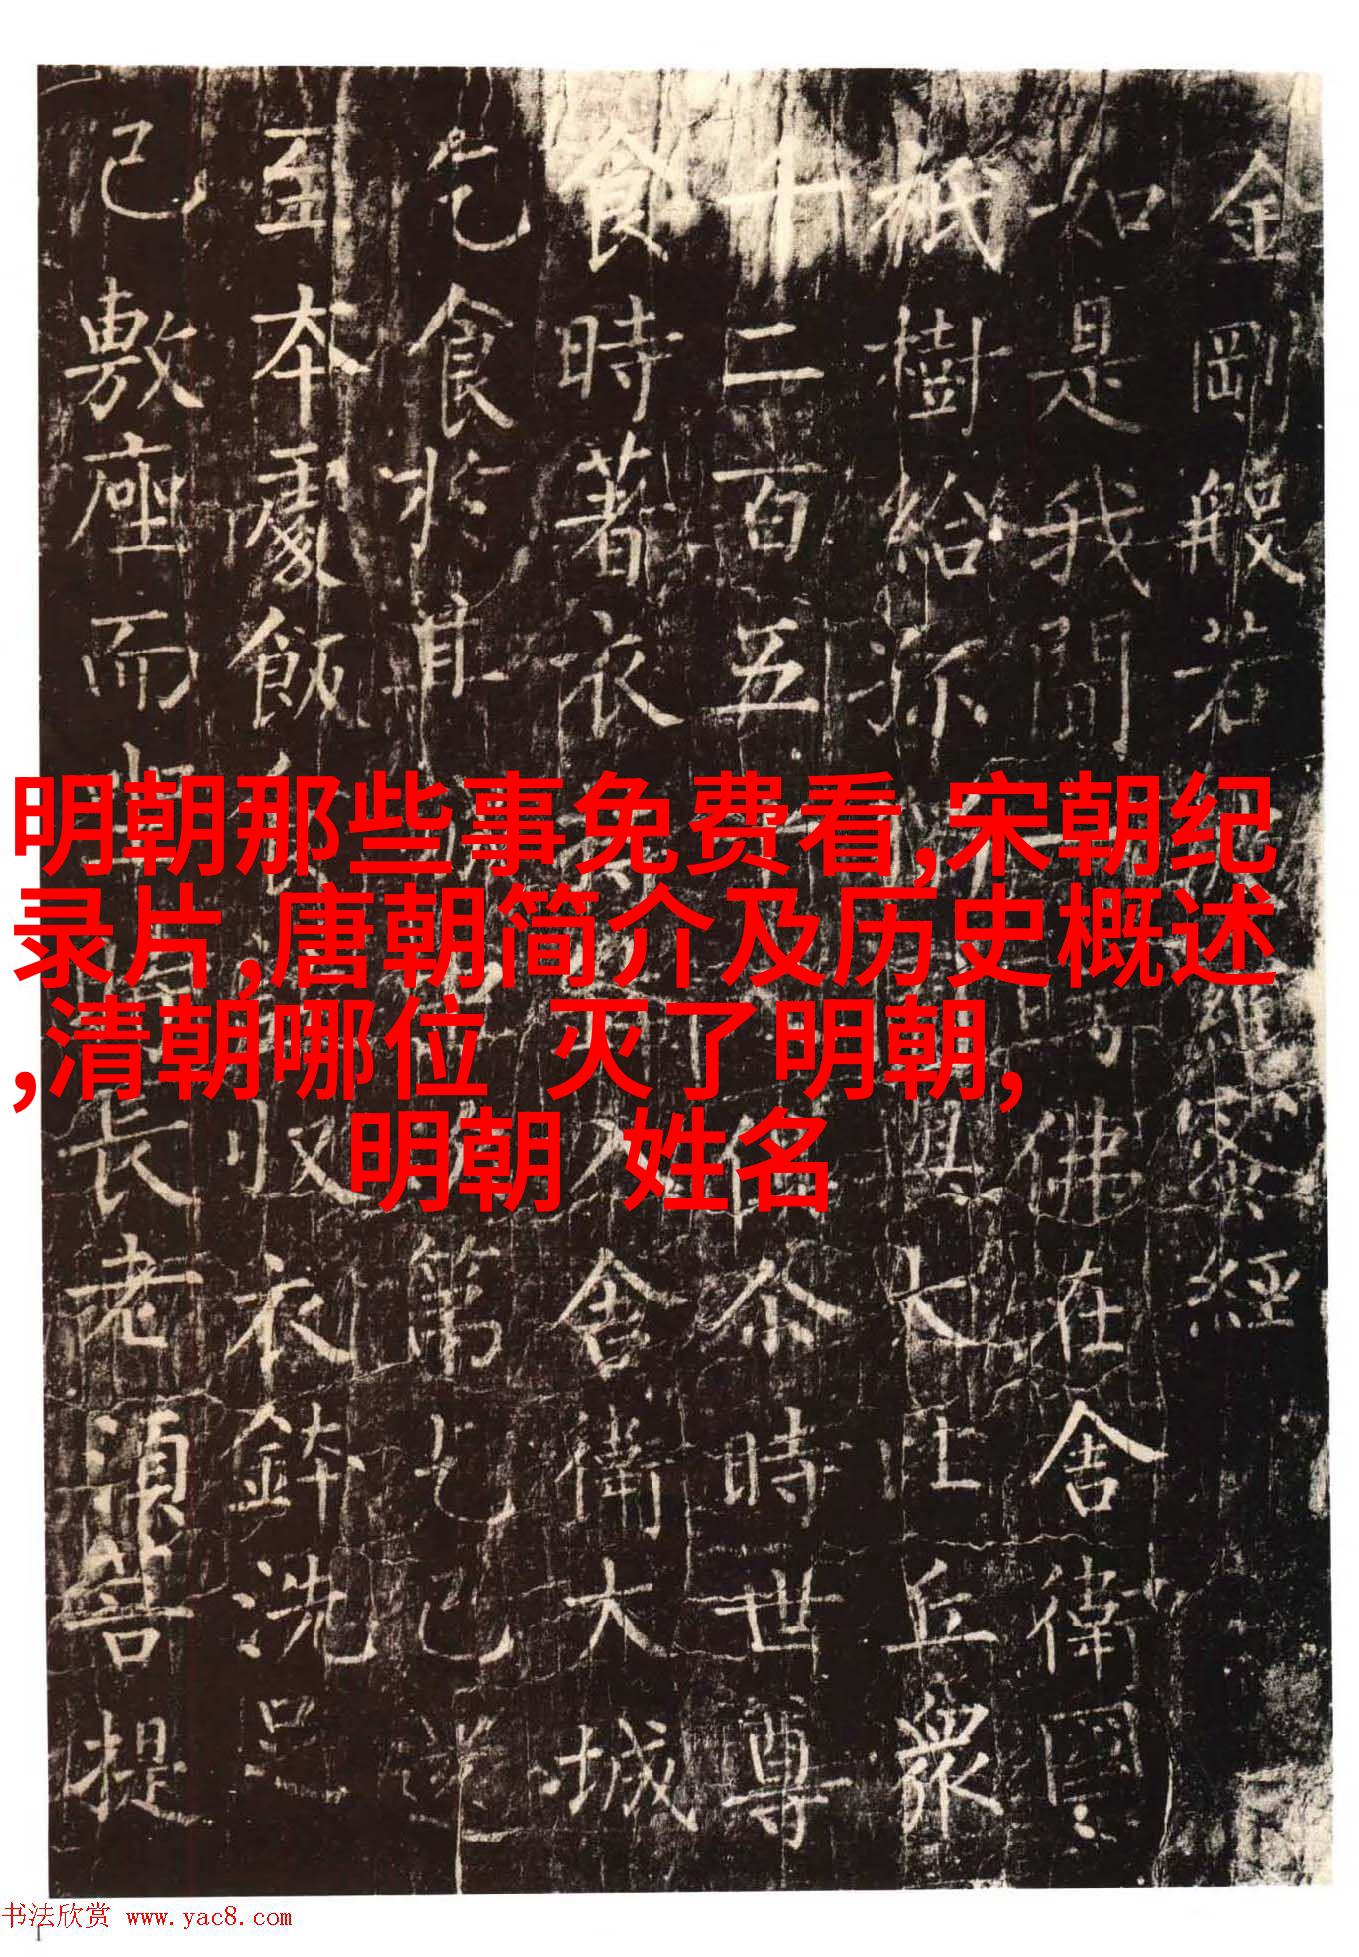 金剛般若羅蜜經
如是我聞佛在舍衛國
祇樹給孤大比丘眾
千二百五俱尒時世尊
食時著衣入舍衛大城
乞食於其第乞已還
至本處飯收衣鉢洗足
已敷座而長老須菩提
明朝那些事免费看,宋朝纪
录片,唐朝简介及历史概述
,清朝哪位 灭了明朝,
明朝 姓名
书法欣赏 www.yac8.com